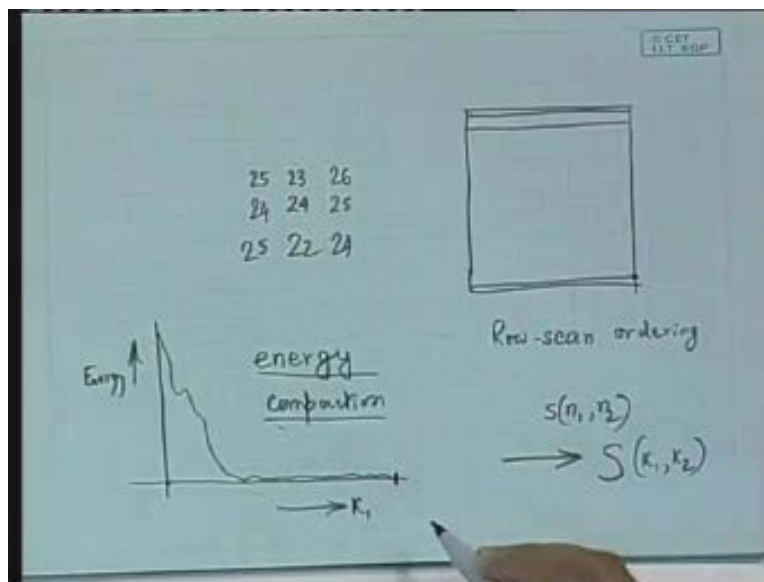 © CET
I.I.T. KGP
25 23 26
24 24 25
25 22 24
Row-scan ordering
Energy
energy
compaction
s(n₁, n₂)
S(k₁, k₂)
K₁